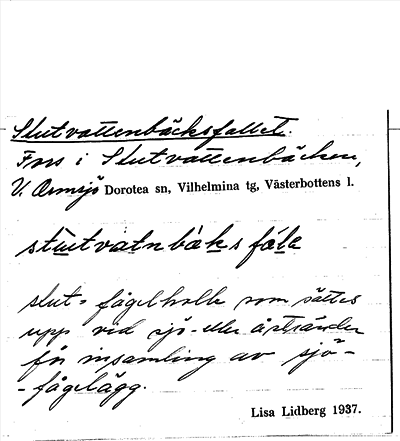 Slutvattenbäcksfallet.
Fors i Slutvattenbäcken,
V. Ormsjö Dorotea sn, Vilhelmina tg, Västerbottens l.
stutvatnbäksfale
slut = fågelholk som sättes
upp vid sjö- eller åstränder
för insamling av sjö-
-fågelägg.
Lisa Lidberg 1937.